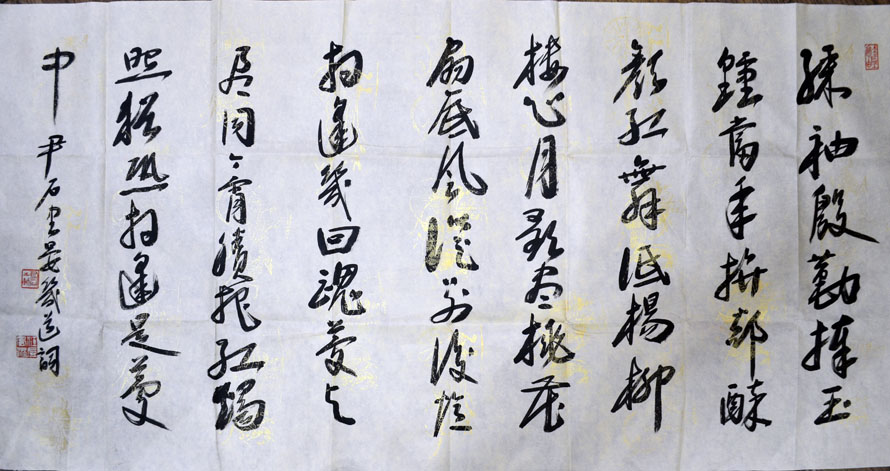 綵袖殷勤捧玉
鍾當年拚卻醉
顏紅舞低楊柳
樓心月歌盡桃花
扇底風從別後憶
相逢幾回魂夢與
君同今宵賸把紅燭
照猶恐相逢是夢
中 尹石書晏幾道詞